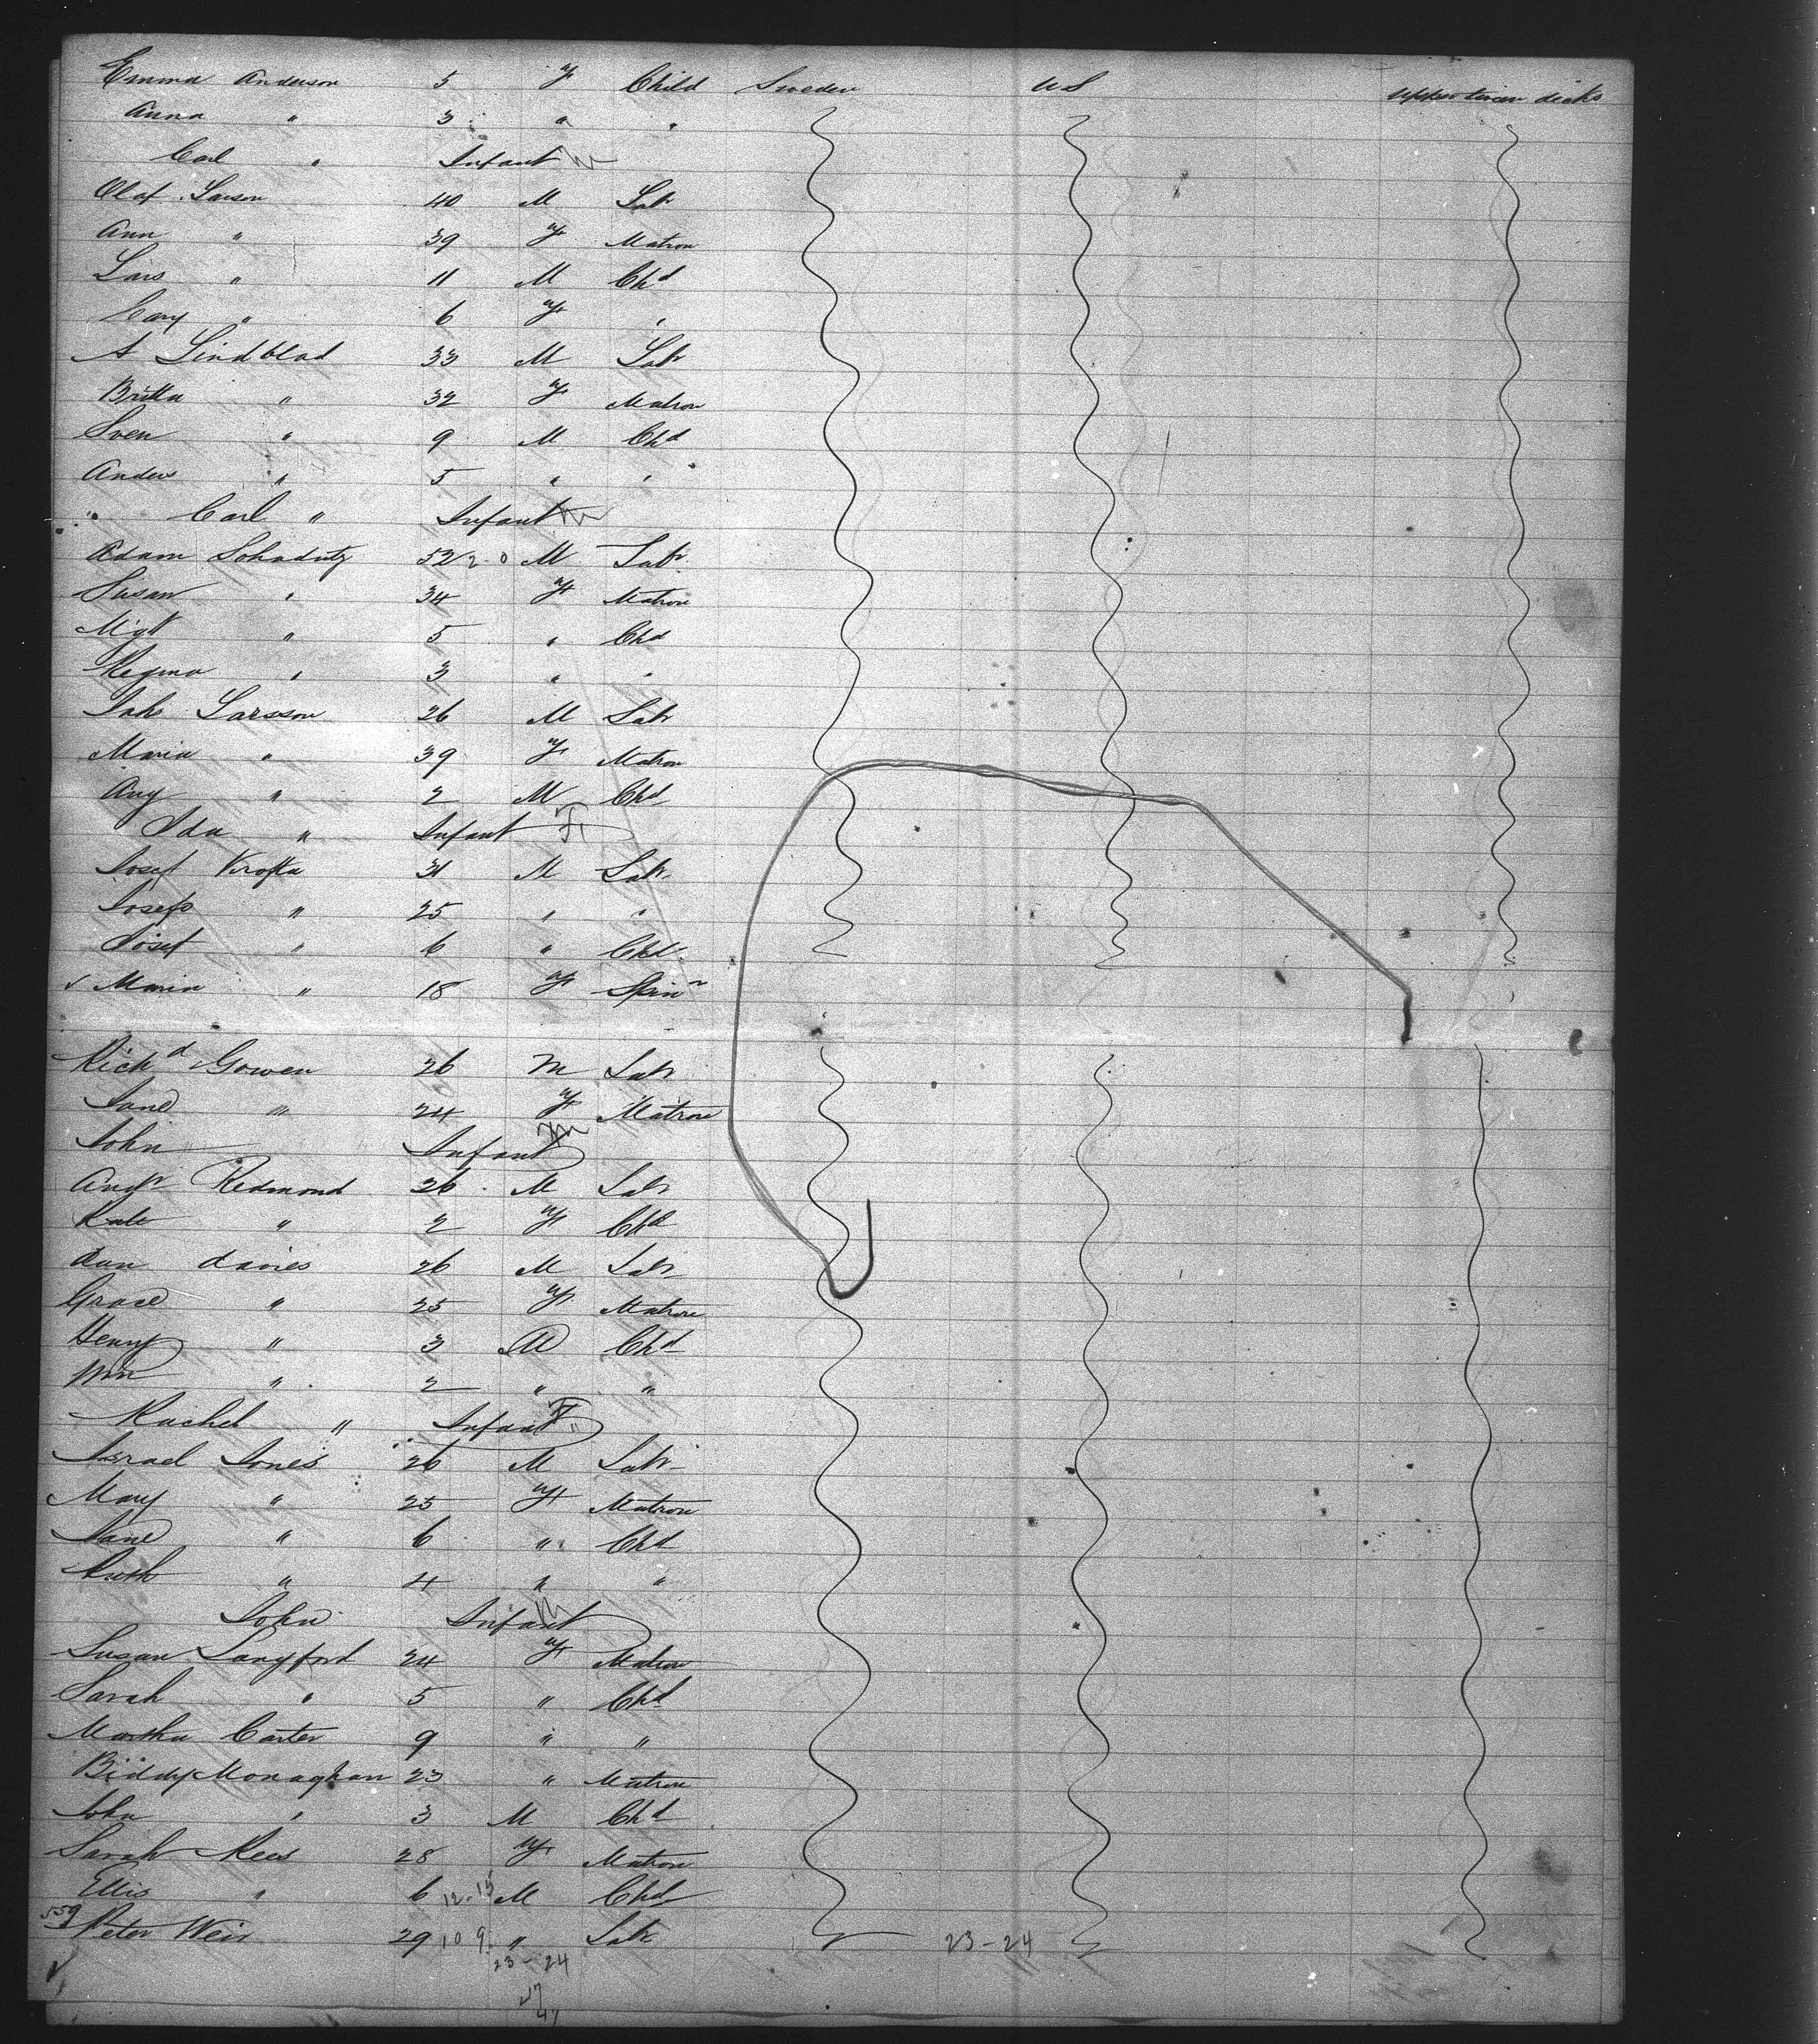 Emma Anderson 5 F Child Sweden US Upper tween decks
Anna " 3 " "
Carl " Infant M
Olaf Larson 40 M Labr
Ann " 39 F Matron
Lars " 11 M Chd
Cary " 6 F "
A Lindblad 33 M Labr
Britta " 32 F Matron
Sven " 9 M Chd
Anders " 5 " "
Carl " Infant M
Adam 52 M Labr
Susan " 34 F Matron
Mgt " 5 " Chd
Regina " 3 " "
Joh Larsson 26 M Labr
Maria " 39 F Matron
Aug " 2 M Chd
Ida " Infant F
Josef Krofta 31 M Labr
Josefs " 25 " "
Josef " 6 " Chd
Maria " 18 F Spinr
Richd Gowen 26 M Labr
Jane " 24 F Matron
John Infant M
Andw Redmond 26 M Labr
Kate " 2 F Chd
Dan Davies 26 M Labr
Grace " 25 F Matron
Henry " 3 M Chd
Wm " 2 " "
Rachel " Infant F
Israel Jones 26 M Labr
Mary " 25 F Matron
Jane " 6 " Chd
Ruth " 4 " "
John Infant M
Susan Langford 24 F Matron
Sarah " 5 " Chd
Martha Carter 9 " "
Biddy Monaghan 23 " Matron
John " 3 M Chd
Sarah Rees 28 F Matron
Ellis " 6 12-15 M Chd
559 Peter Weir 29 10 9 " Labr 23-24
23-24
47